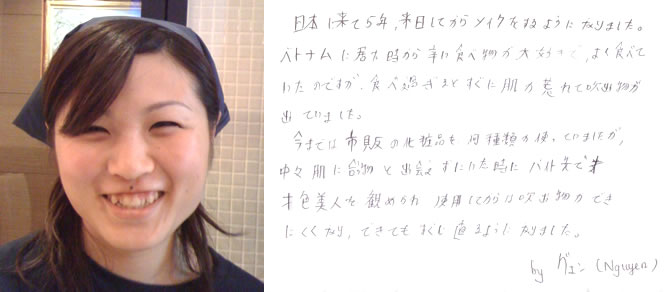 日本に来て5年,来日してからメイクをするようになりました。
ベトナムに居た時から辛い食べ物が大好きで,よく食べて
いたのですが、食べ過ぎるとすぐに肌が荒れて吹出物が
出ていました。
今までは市販の化粧品を何種類か使っていましたが,
中々肌に合う物と出会えずにいた時にバイト先で
才色美人を観められ使用してからは吹出物ができ
にくくなり,できてもすぐに直るようになりました。
by グエン(Nguyen)